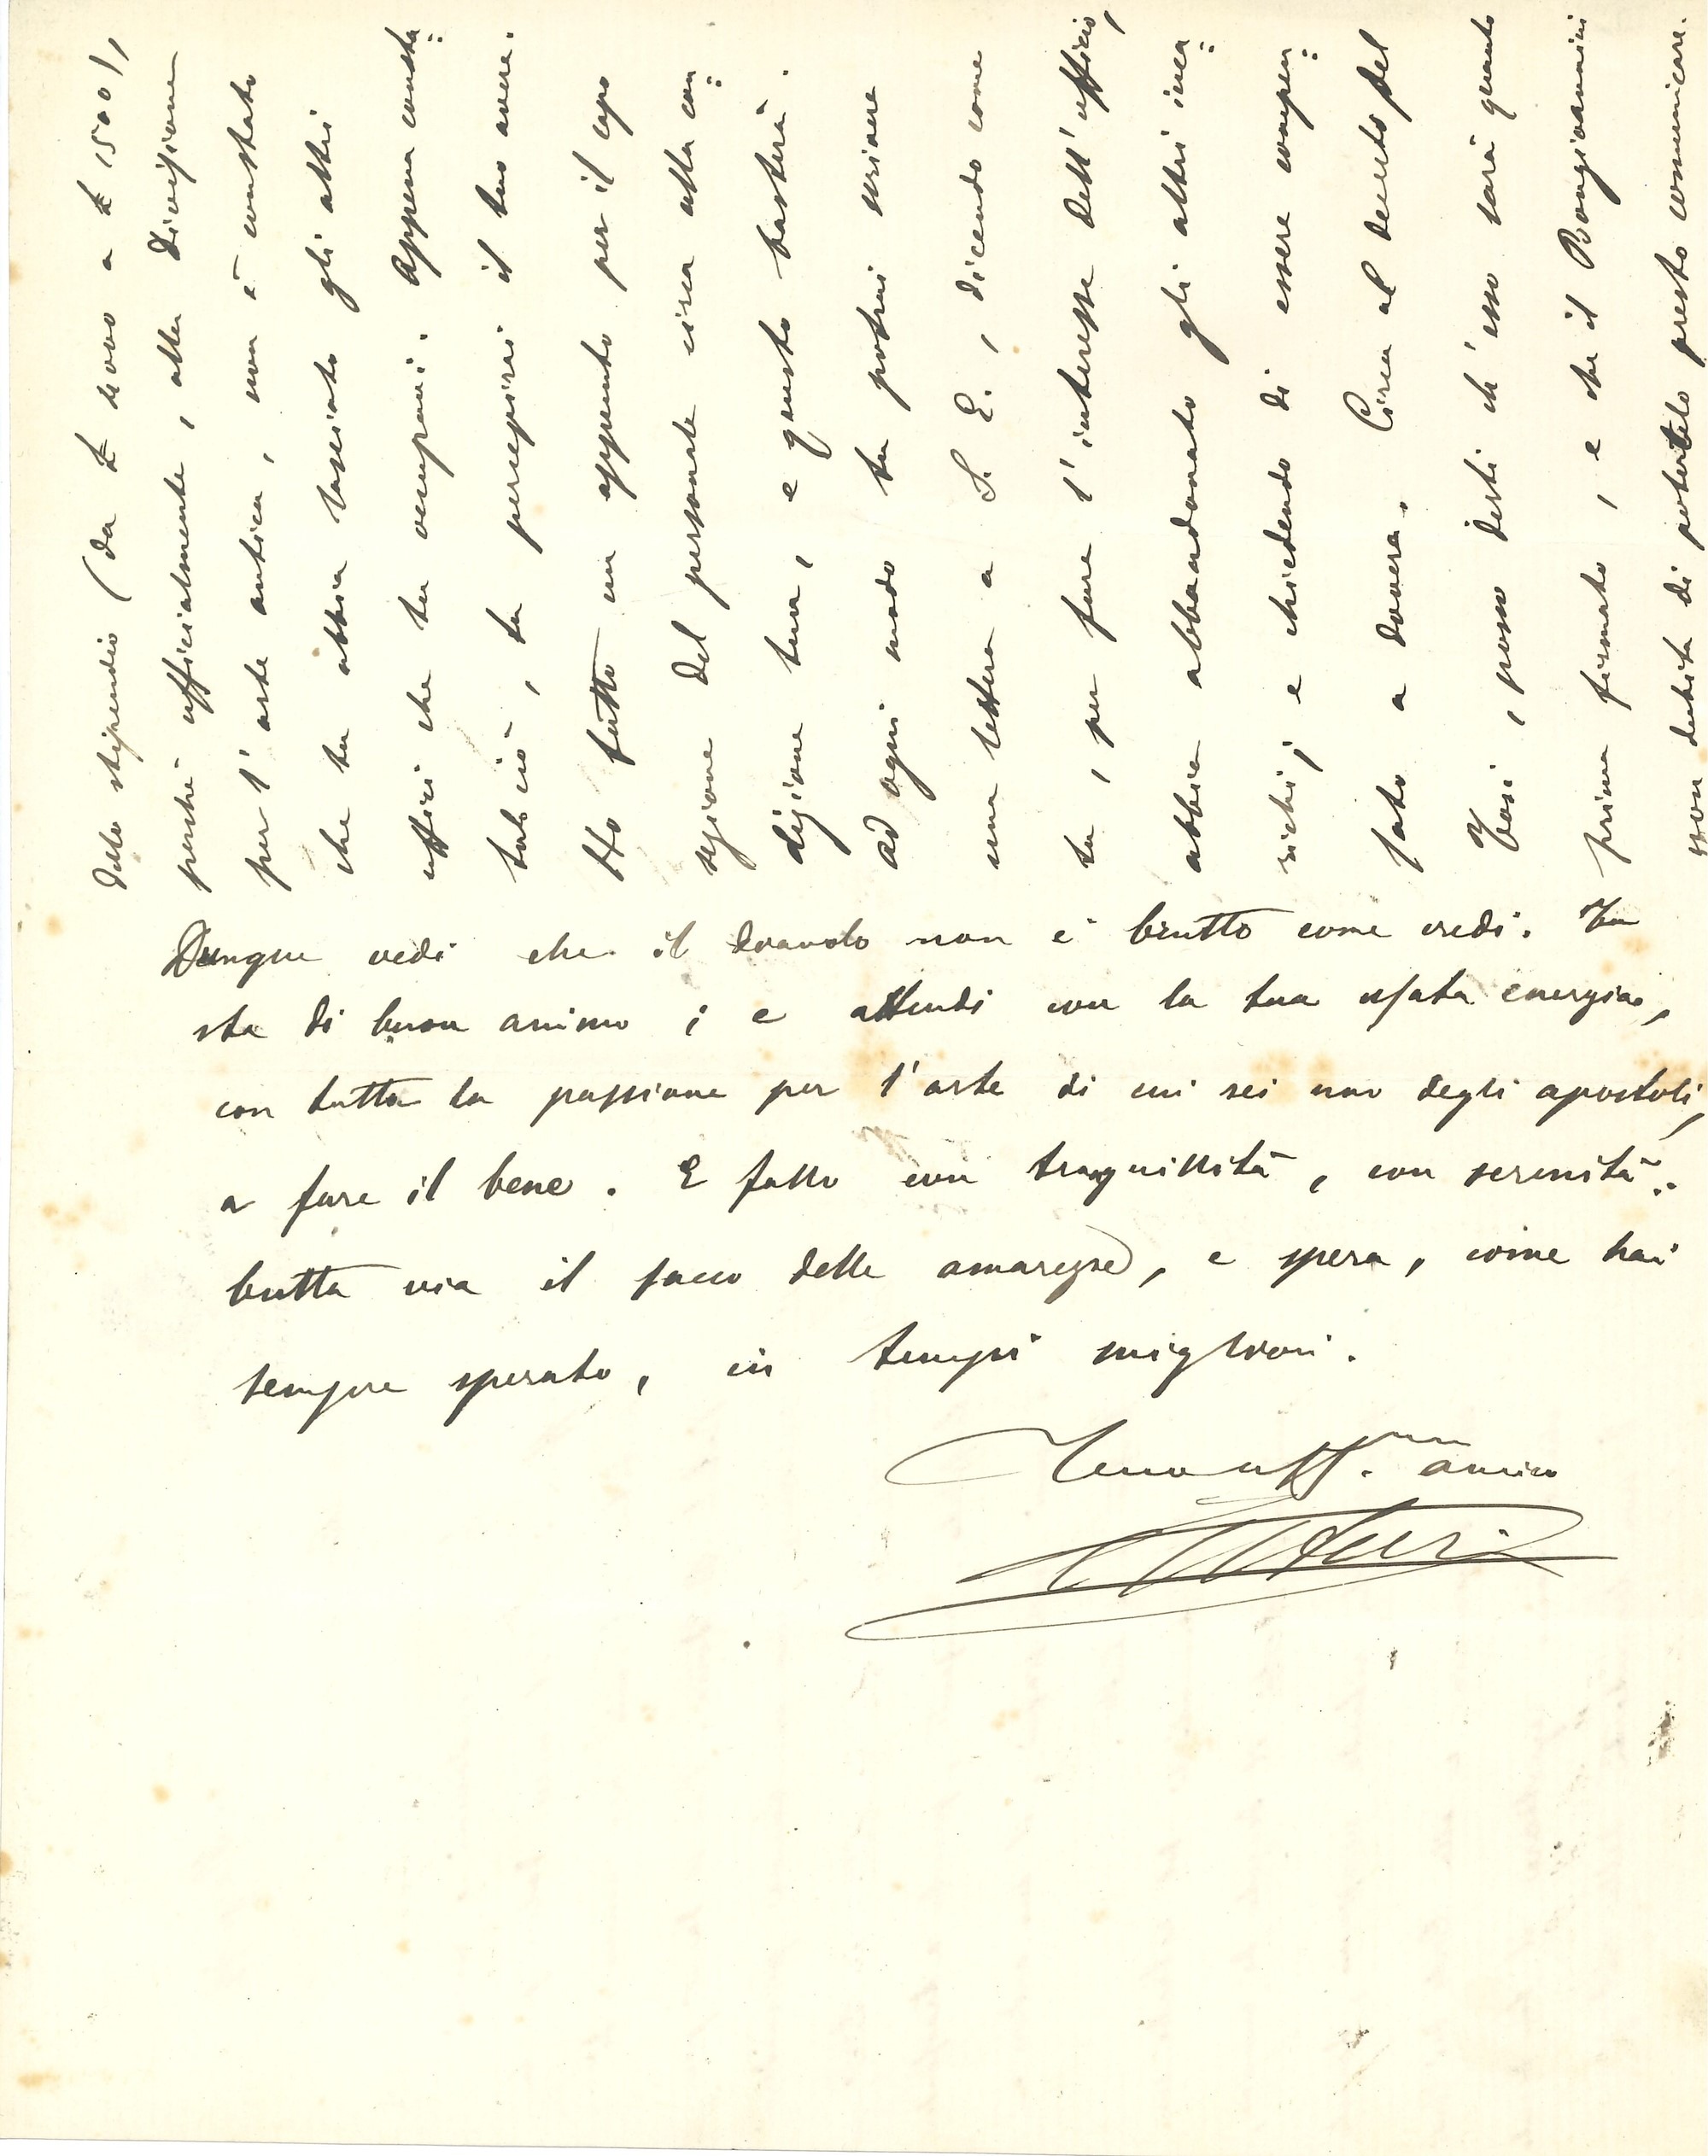 dello stipendio (da £ 2000 a £ 1500),
perchè ufficialmente, alla Divisione
per l'arte antica, non è constato
che tu abbia lasciato gli altri
uffici che tu occupavi. Appena consta=
tato ciò, tu percepirai il tuo avere.
Ho fatto un appunto per il capo
sezione del personale circa alla con=
dizione tua, e questo basterà.
Ad ogni modo tu potrai scrivere
una lettera a S. E., dicendo come
tu, per fare l'interesse dell'ufficio,
abbia abbandonato gli altri inca=
richi; e chiedendo di essere compen=
sato a dovere. Circa al decreto del
Tosi, posso dirti ch'esso sarà quanto
prima firmato, e che il Bongiovannini
non dubita di potertelo presto comunicare.
Dunque vedi che il diavolo non è brutto come credi. Tu
sta di buon animo; e attendi con la tua usata energia,
con tutta la passione per l'arte di cui sei uno degli apostoli,
a fare il bene. E fallo con tranquillità, con serenità:
butta via il sacco delle amarezze, e spera, come hai
sempre sperato, in tempi migliori.
Tuo aff.mo amico